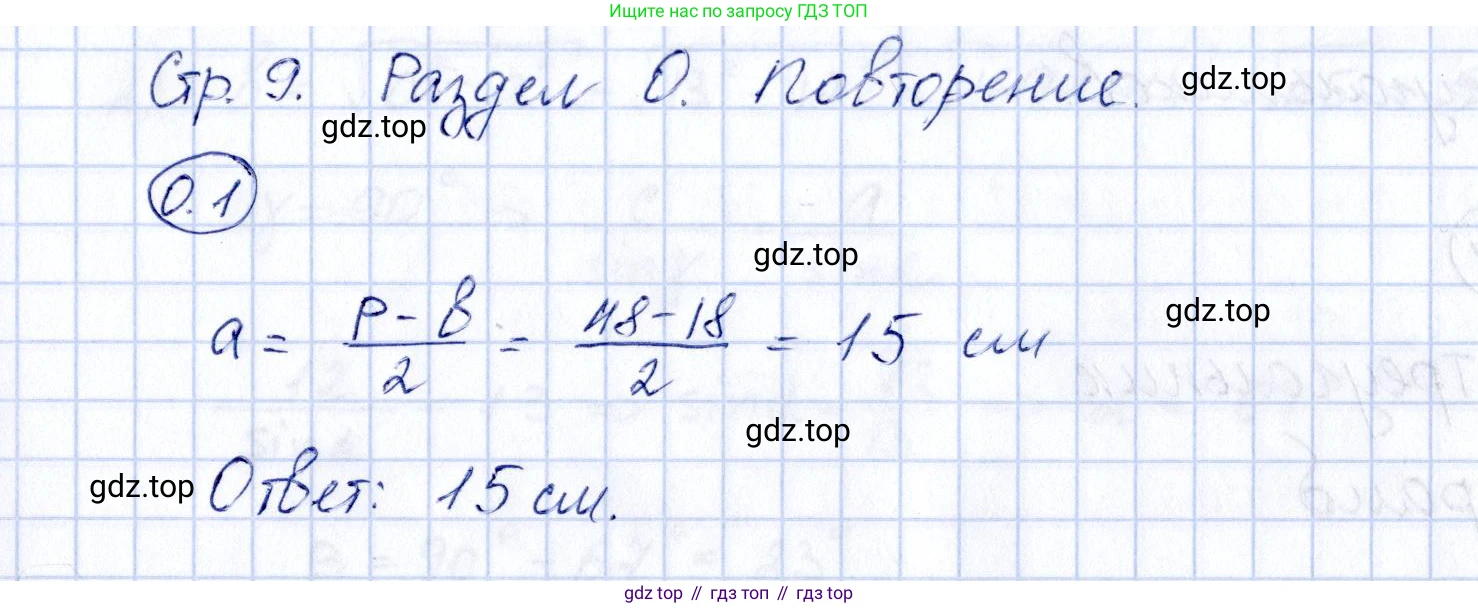 Ищите нас по запросу ГДЗ ТОП
Стр. 9. Раздел 0. Повторение.
gdz.top
gdz.top
0.1
gdz.top
a = \frac{P - b}{2} = \frac{48 - 18}{2} = 15 см
gdz.top
gdz.top
Ответ: 15 см.
gdz.top
gdz top // гдз топ // гдз top